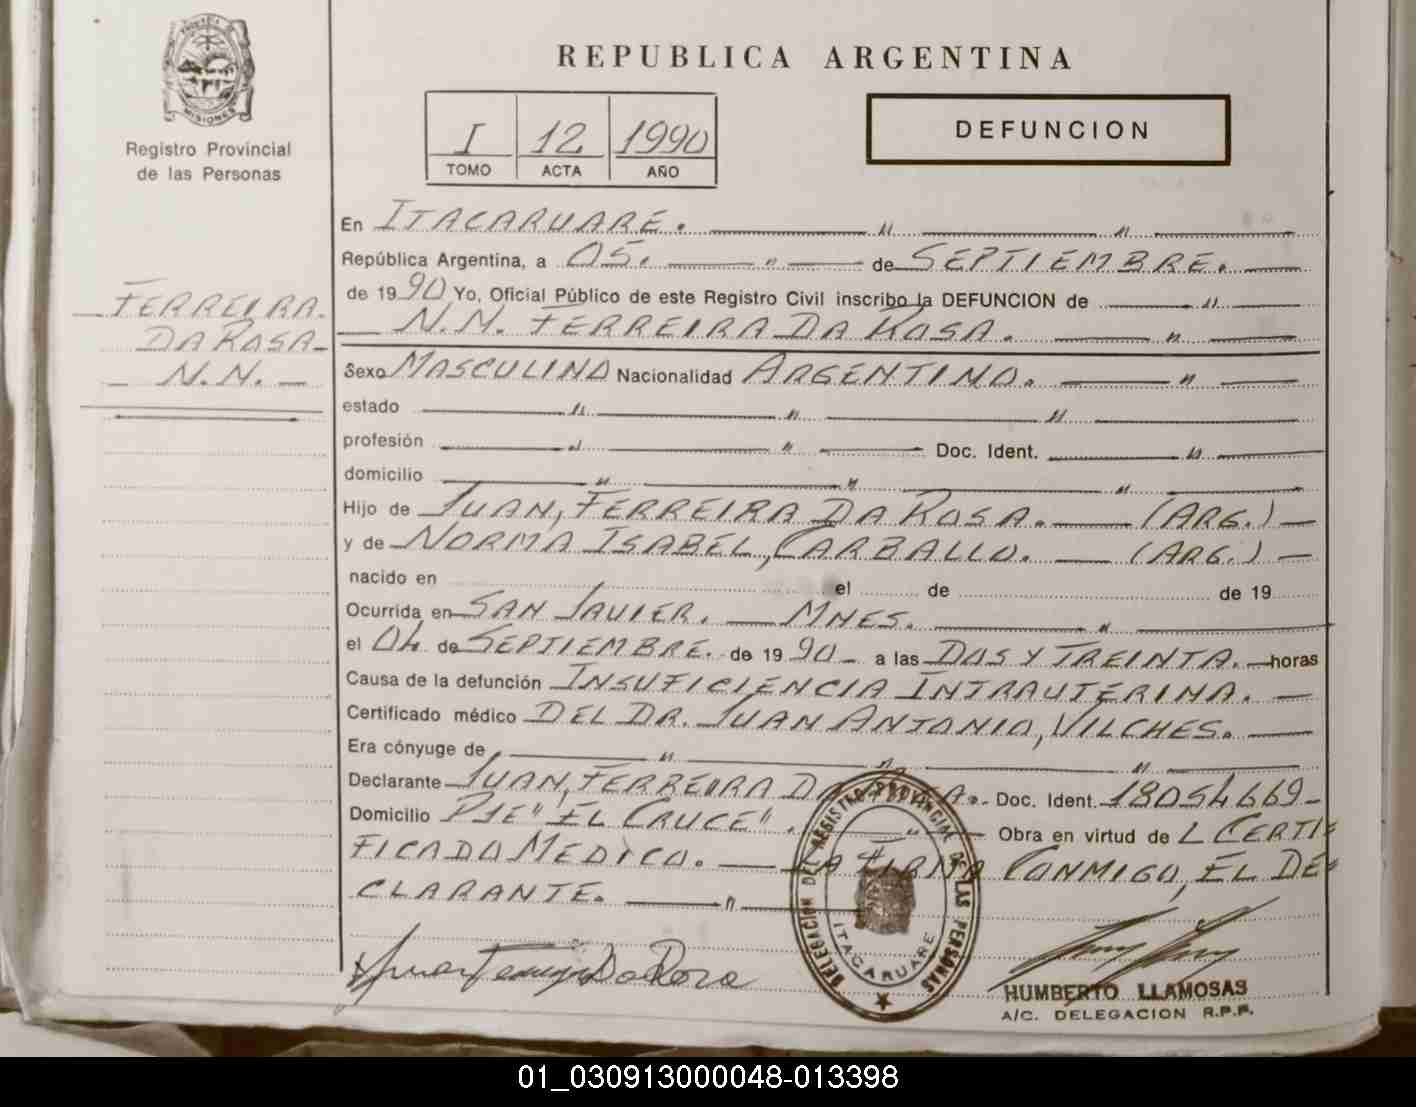 MISIONES
Registro Provincial
de las Personas
REPUBLICA ARGENTINA
I 12 1990
TOMO ACTA AÑO
DEFUNCION
FERREIRA.
DA ROSA
N.N.
En ITACARUARE.
República Argentina, a 05. de SEPTIEMBRE.
de 1990 Yo, Oficial Público de este Registro Civil inscribo la DEFUNCION de
N.N. FERREIRA DA ROSA.
Sexo MASCULINO Nacionalidad ARGENTINO.
estado
profesión Doc. Ident.
domicilio
Hijo de JUAN, FERREIRA DA ROSA. (ARG.)
y de NORMA ISABEL, CARBALLO. (ARG.)
nacido en el de de 19
Ocurrida en SAN JAVIER. MNES.
el 04 de SEPTIEMBRE. de 1990 a las DOS Y TREINTA. horas
Causa de la defunción INSUFICIENCIA INTRAUTERINA.
Certificado médico DEL DR. JUAN ANTONIO, VILCHES.
Era cónyuge de
Declarante JUAN, FERREIRA DA ROSA. Doc. Ident. 18054669
Domicilio PJE "EL CRUCE". Obra en virtud de L CERTI
FICADO MEDICO. LA FIRMA CONMIGO, EL DE
CLARANTE.
DELEGACION DEL REGISTRO PROVINCIAL DE LAS PERSONAS
ITACARUARE
Juan Ferreira Da Rosa
HUMBERTO LLAMOSAS
A/C. DELEGACION R.P.P.
01_030913000048-013398